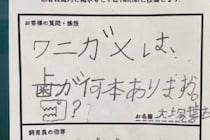 お客様の質問・感想
ワニガメは、
歯が何本ありますか
?
お名前
飼育員の回答